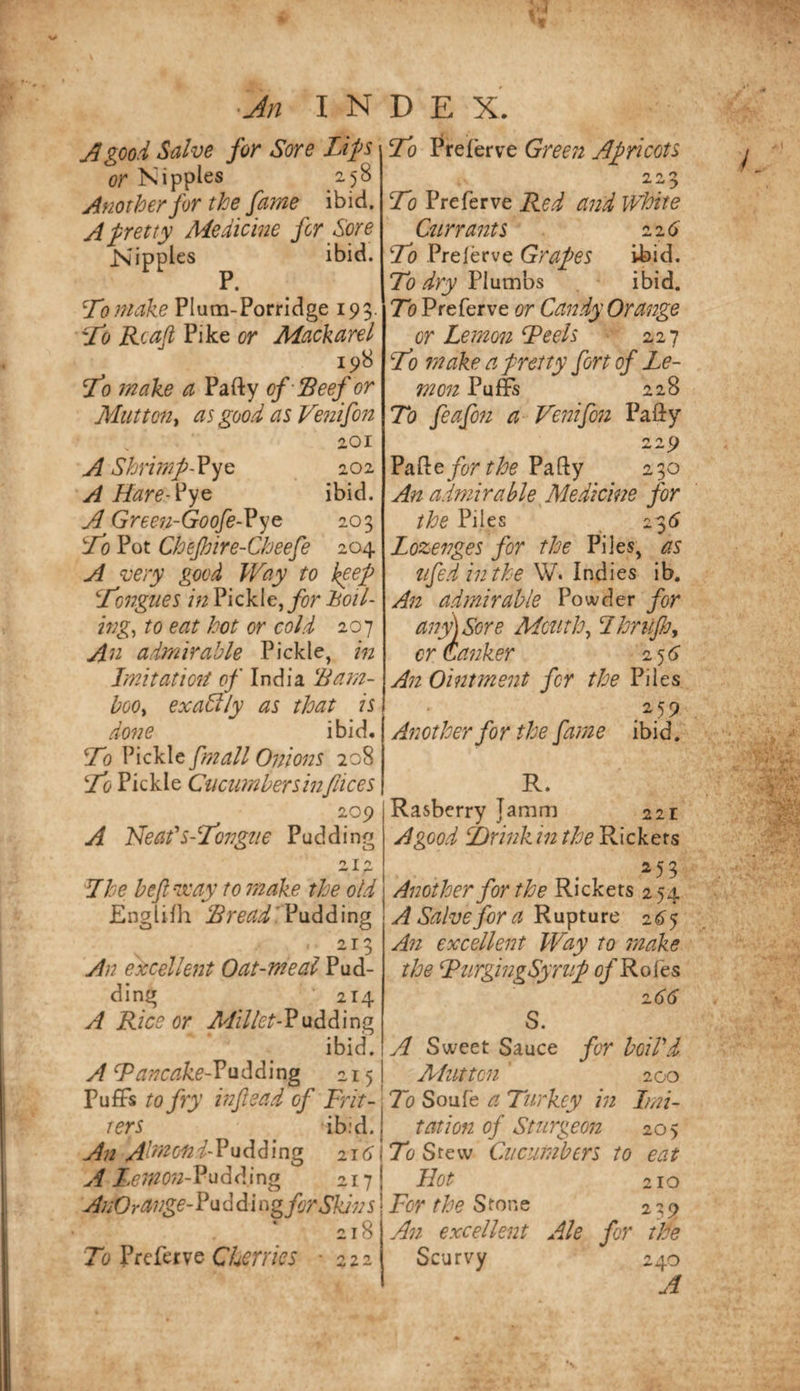 An INDEX.
A good Salve for Sore Lips
or Nipples 258
Another for the ſame ibid.
A pretty Medicine for Sore
Nipples ibid.
P.
To make Plum-Porridge 193.
To Roaſt Pike or Mackarel
198
To make a Paſty of Beef or
Mutton, as good as Veniſon
201
A Shrimp-Pye 202
A Hare-Pye ibid.
A Green-Gooſe-Pye 203
To Pot Cheſhire-Cheeſe 204
A very good Way to keep
Tongues in Pickle, for Boil-
ing, to eat hot or cold 207
An admirable Pickle, in
Imitation of India Bam-
boo, exactly as that is
done ibid.
To Pickle ſmall Onions 208
To Pickle Cucumbers in ſlices
209
A Neat's-Tongue Pudding
212
The beſt way to make the old
Engliſh Bread Pudding
213
An excellent Oat-meal Pud-
ding 214
A Rice or Millet-Pudding
ibid.
A Pancake-Pudding 215
Puffs to fry inſtead of Frit-
ters ibid.
An Almond-Pudding 216
A Lemon-Pudding 217
An Orange-Pudding for Skins
218
To Preſerve Cherries 222
To Preſerve Green Apricots
223
To Preſerve Red and White
Currants 226
To Preſerve Grapes ibid.
To dry Plumbs ibid.
To Preſerve or Candy Orange
or Lemon Peels 227
To make a pretty ſort of Le-
mon Puffs 228
To ſeaſon a Veniſon Paſty
229
Paſte for the Paſty 230
An admirable Medicine for
the Piles 236
Lozenges for the Piles, as
uſed in the W. Indies ib.
An admirable Powder for
any Sore Mouth, Thruſh,
or Canker 256
An Ointment for the Piles
259
Another for the ſame ibid.
R.
Rasberry Jamm 221
A good Drink in the Rickets
253
Another for the Rickets 254
A Salve for a Rupture 265
An excellent Way to make
the Purging Syrup of Roſes
266
S.
A Sweet Sauce for boil'd
Mutton 200
To Souſe a Turkey in Imi-
tation of Sturgeon 205
To Stew Cucumbers to eat
Hot 210
For the Stone 239
An excellent Ale for the
Scurvy 240
A